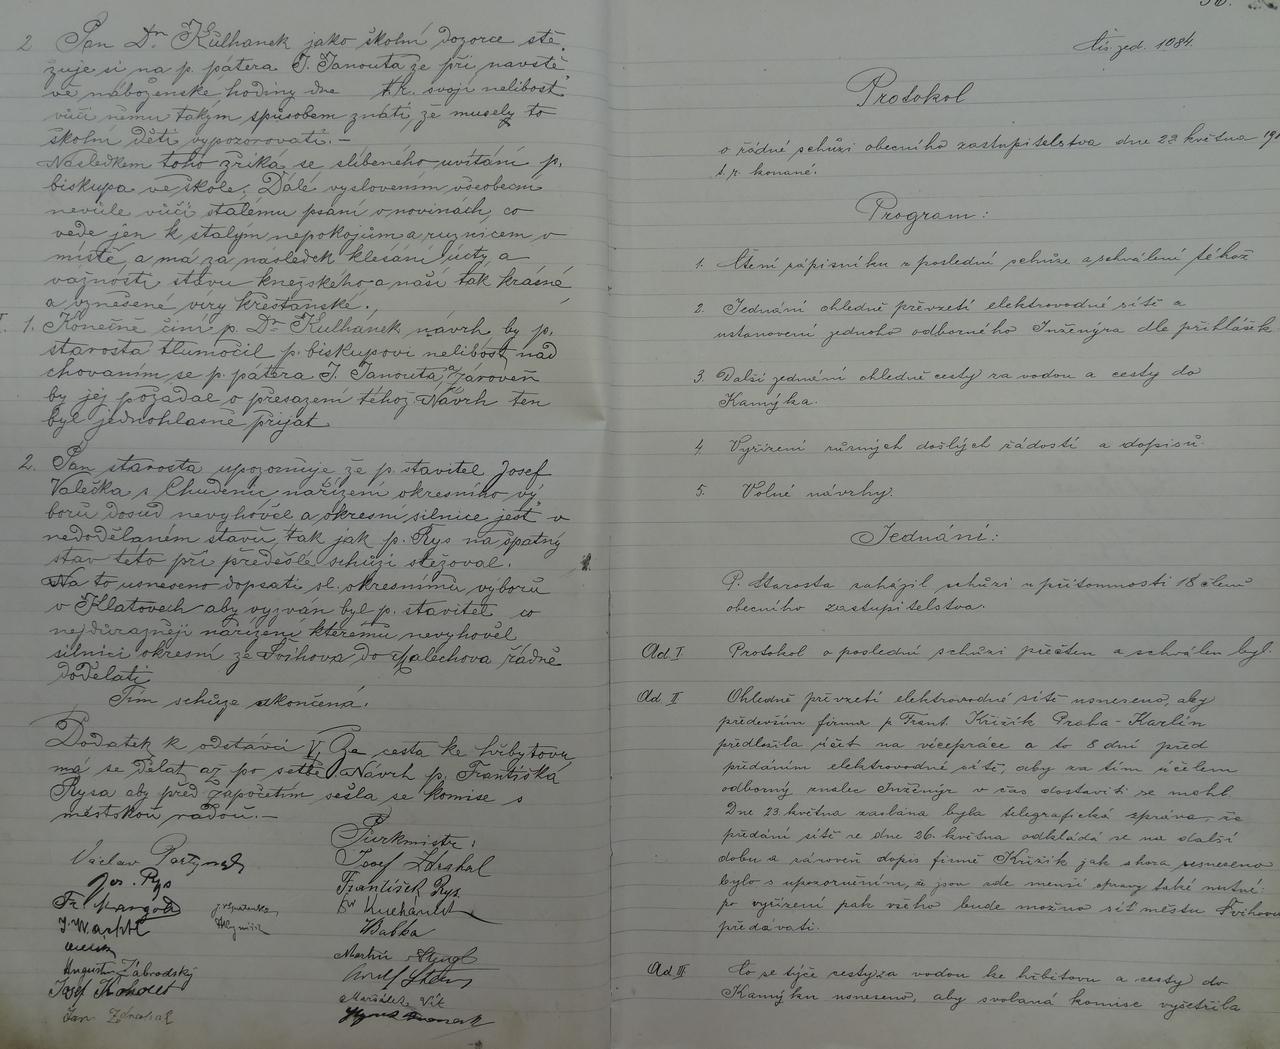 2 Pan Dr. Kulhanek jako školní dozorce stě-
žuje si na p. pátera J. Janouta že při navště-
vě náboženské hodiny dne t.r. svoji nelibost
vůči němu takým spůsobem znáti, že musely to
školní děti vypozorovati.-
Následkem toho zříká se slíbeného uvítání p.
biskupa ve škole. Dále vyslovením všeobecní
nevůle vůči stálému psaní v novinách, co
vede jen k stalým nepokojům a ruznicem v
místě, a má za následek klesání úcty, a
vážnosti stavu kněžského a naší tak krásné
a vznešené víry křesťanské.
1. Konečně činí p. Dr. Kulhánek návrh by p.
starosta tlumočil p. biskupovi nelibost nad
chovaním se p. pátera J. Janouta, zároveň
by jej požádal o přesazení téhož. Návrh ten
byl jednohlasně přijat
2. Pan starosta upozorňuje že p. stavitel Josef
Valečka z Chudenic nařízení okresního vý-
boru dosud nevyhověl a okresní silnice jest v
nedodělaném stavu, tak jak p. Rys na špatný
stav této při předešlé schůzi stěžoval.
Na to usneseno dopsati sl. okresnímu výboru
v Klatovech aby vyzván byl p. stavitel co
nejdůrazněji nařízení kterému nevyhověl
silnici okresní ze Švihova do Malechova řádně
dodělati
Tím schůze ukončená.
Dodatek k odstavci V. Že cesta ke hřbytovu
má se dělat až po setbě. Návrh p. Františka
Rysa aby před započetím sešla se komise s
městskou radou.-
Purkmistr:
Václav
Josef Zdrahal
Jos. Rys
František Rys
Fr. Mangold
Kuchánek
J. Wachtl
Babka
Martin Stengl
Augustin Zábrodský
Josef Kohout
Vlk
Jan Zdrahal
čís. jed. 1084.
Protokol
o řádné schůzi obecního zastupitelstva dne 23 května 191
t.r. konané.
Program:
1. Čtení zápisníku z poslední schůze a schválení téhož
2. Jednání ohledně převzetí elektrovodné sítě a
ustanovení jednoho odborného Inženýra dle přihlášek
3. Další jednání ohledně cesty za vodou a cesty do
Kamýka.
4. Vyřízení různých došlých žádostí a dopisů.
5. Volné návrhy.
Jednání:
P. Starosta zahájil schůzi v přítomnosti 18 členů
obecního zastupitelstva.
Ad I Protokol o poslední schůzi přečten a schválen byl.
Ad. II Ohledně převzetí elektrovodné sítě usneseno, aby
především firma p. Frant. Křižík Praha-Karlín
předložila účet na vícepráce a to 8 dní před
předáním elektrovodné sítě, aby za tím účelem
odborný znalec Inženýr v čas dostaviti se mohl.
Dne 23. května zaslána byla telegrafická zpráva, že
předání sítě ze dne 26. května odkládá se na další
dobu a zároveň dopis firmě Křižík jak shora usneseno
bylo s upozorněním, že jsou zde menší opravy také nutné:
po vyřízení pak všeho bude možno síť městu Švihovu
předávati.
Ad III Co se týče cesty za vodou ke hřbitovu a cesty do
Kamýku usneseno, aby svolaná komise vyšetřila